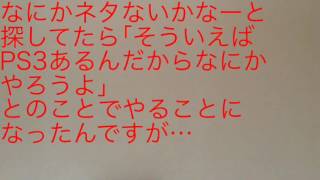 なにかネタないかなーと
探してたら「そういえば
PS3あるんだからなにか
やろうよ」
とのことでやることに
なったんですが…